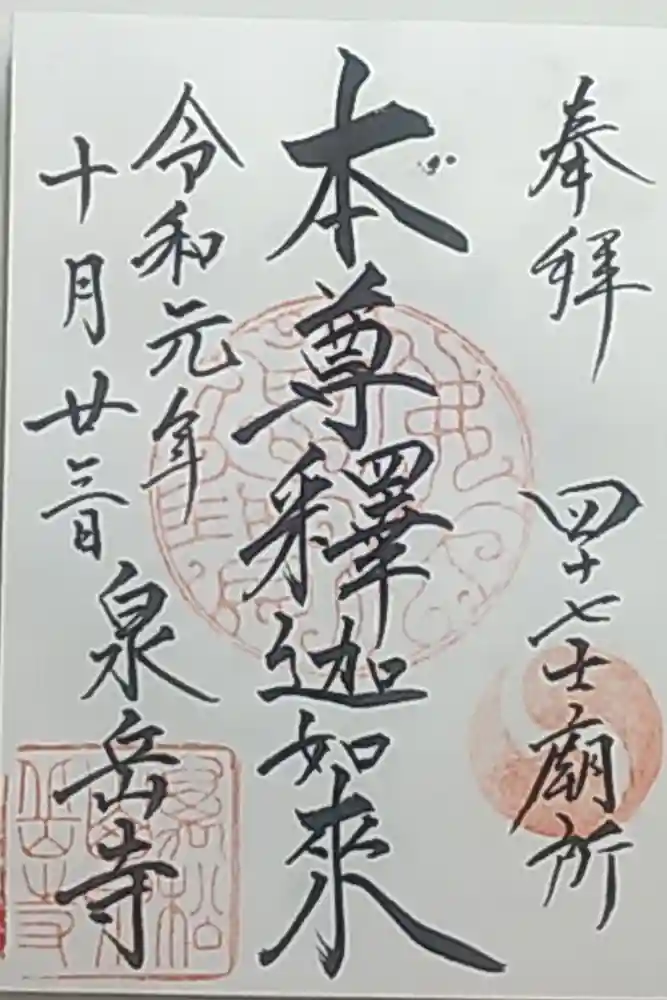 奉拜
四十七士廟所
本尊釋迦如來
令和元年
十月廿三日
泉岳寺